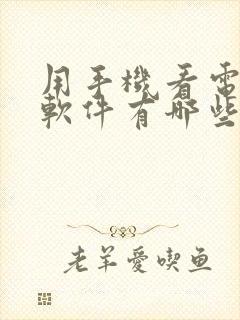 用手機看電
軟件有哪些
老羊愛喫鱼